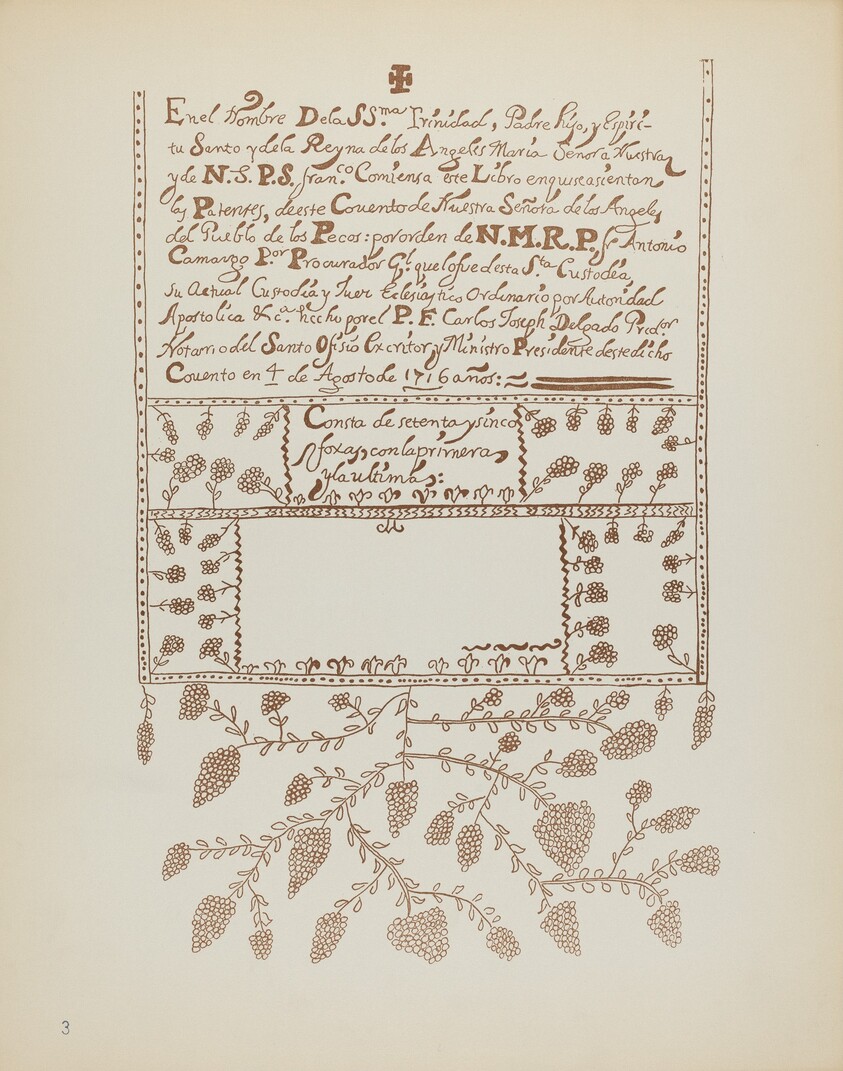 En el Nombre De la SS.ma Trinidad, Padre hijo, y Espiri-
tu Santo y de la Reyna de los Angeles Maria Señora Nuestra
y de N.S. P.S. fran.co Comiensa este Libro enquiseasientan
las Patentes, de este Covento de Nuestra Señora de los Angeles
del Pueblo de los Pecos: por orden de N.M.R.P. fr Antonio
Camargo P.or Procurador G.l que lo fue desta S.ta Custodia
su Actual Custodia y Juez Eclesiastico Ordinario por Autoridad
Apostolica &c.a hecho por el P. F. Carlos Joseph Delgado Predor.
Notario del Santo Ofisio Excritor, y Ministro Presidente deste dicho
Covento en 4 de Agosto de 1716 años:
Consta de setenta y sinco
foxas, con la primera,
y la ultima:
3